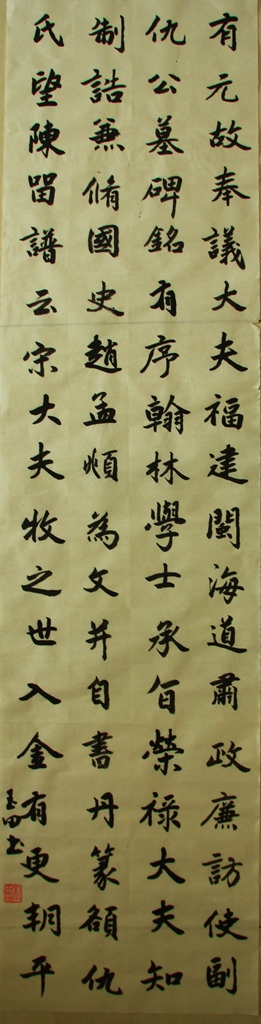 有元故奉議大夫福建閩海道肅政廉訪使副
仇公墓碑銘有序翰林學士承旨榮祿大夫知
制誥兼脩國史趙孟頫為文并自書丹篆額仇
氏望陳留譜云宗大夫牧之世入金有更朝平
玉田書